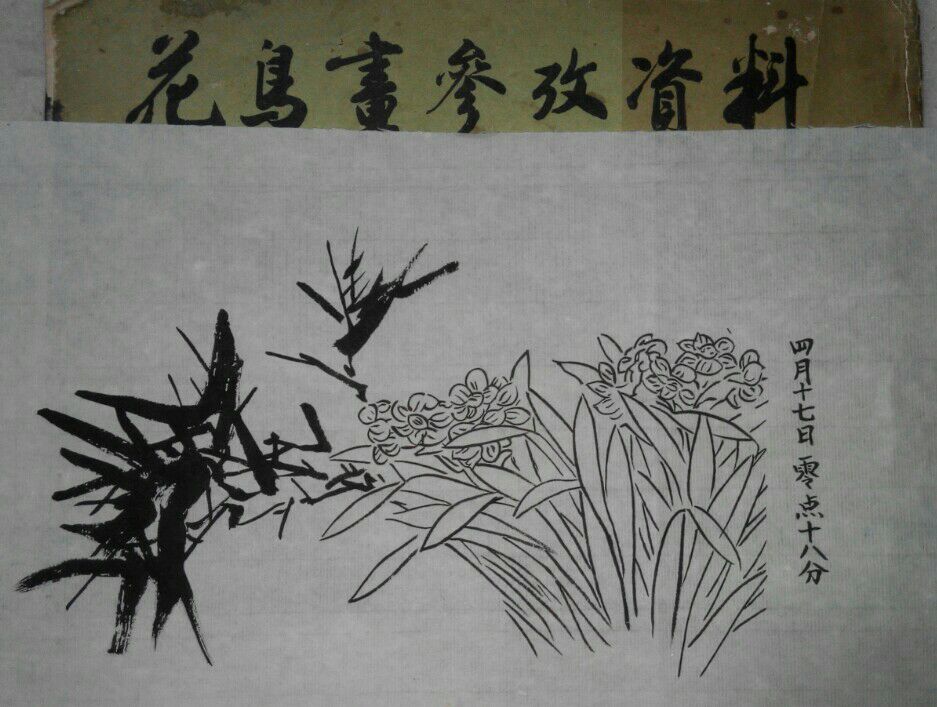 花鳥畫參攷資料
四月十七日 零点十八分